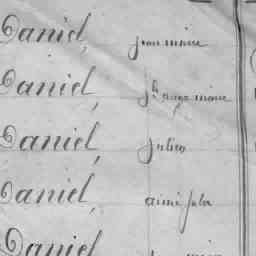 Daniel, jean marie
Daniel, jh ange marie
Daniel, Julien
Daniel, aimé Jules
Daniel